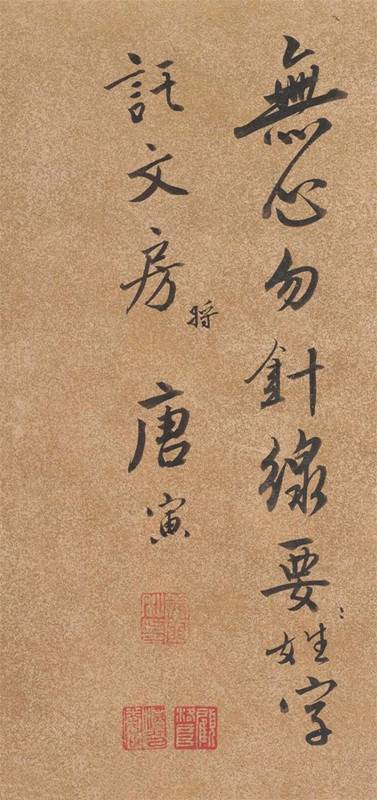 無心勿針線要姓字
託文房
將
唐寅